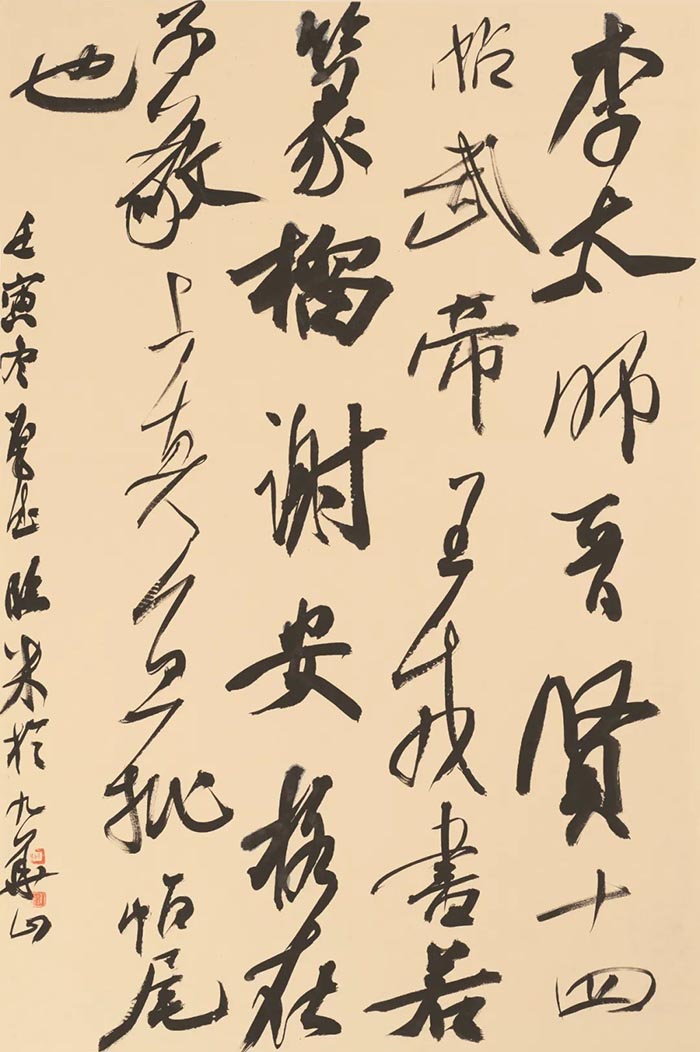 李太师晋贤十四
帖武帝王戎書若
篆籀谢安格在
子敬上真宜批帖尾
也
壬寅冬临米於九華山